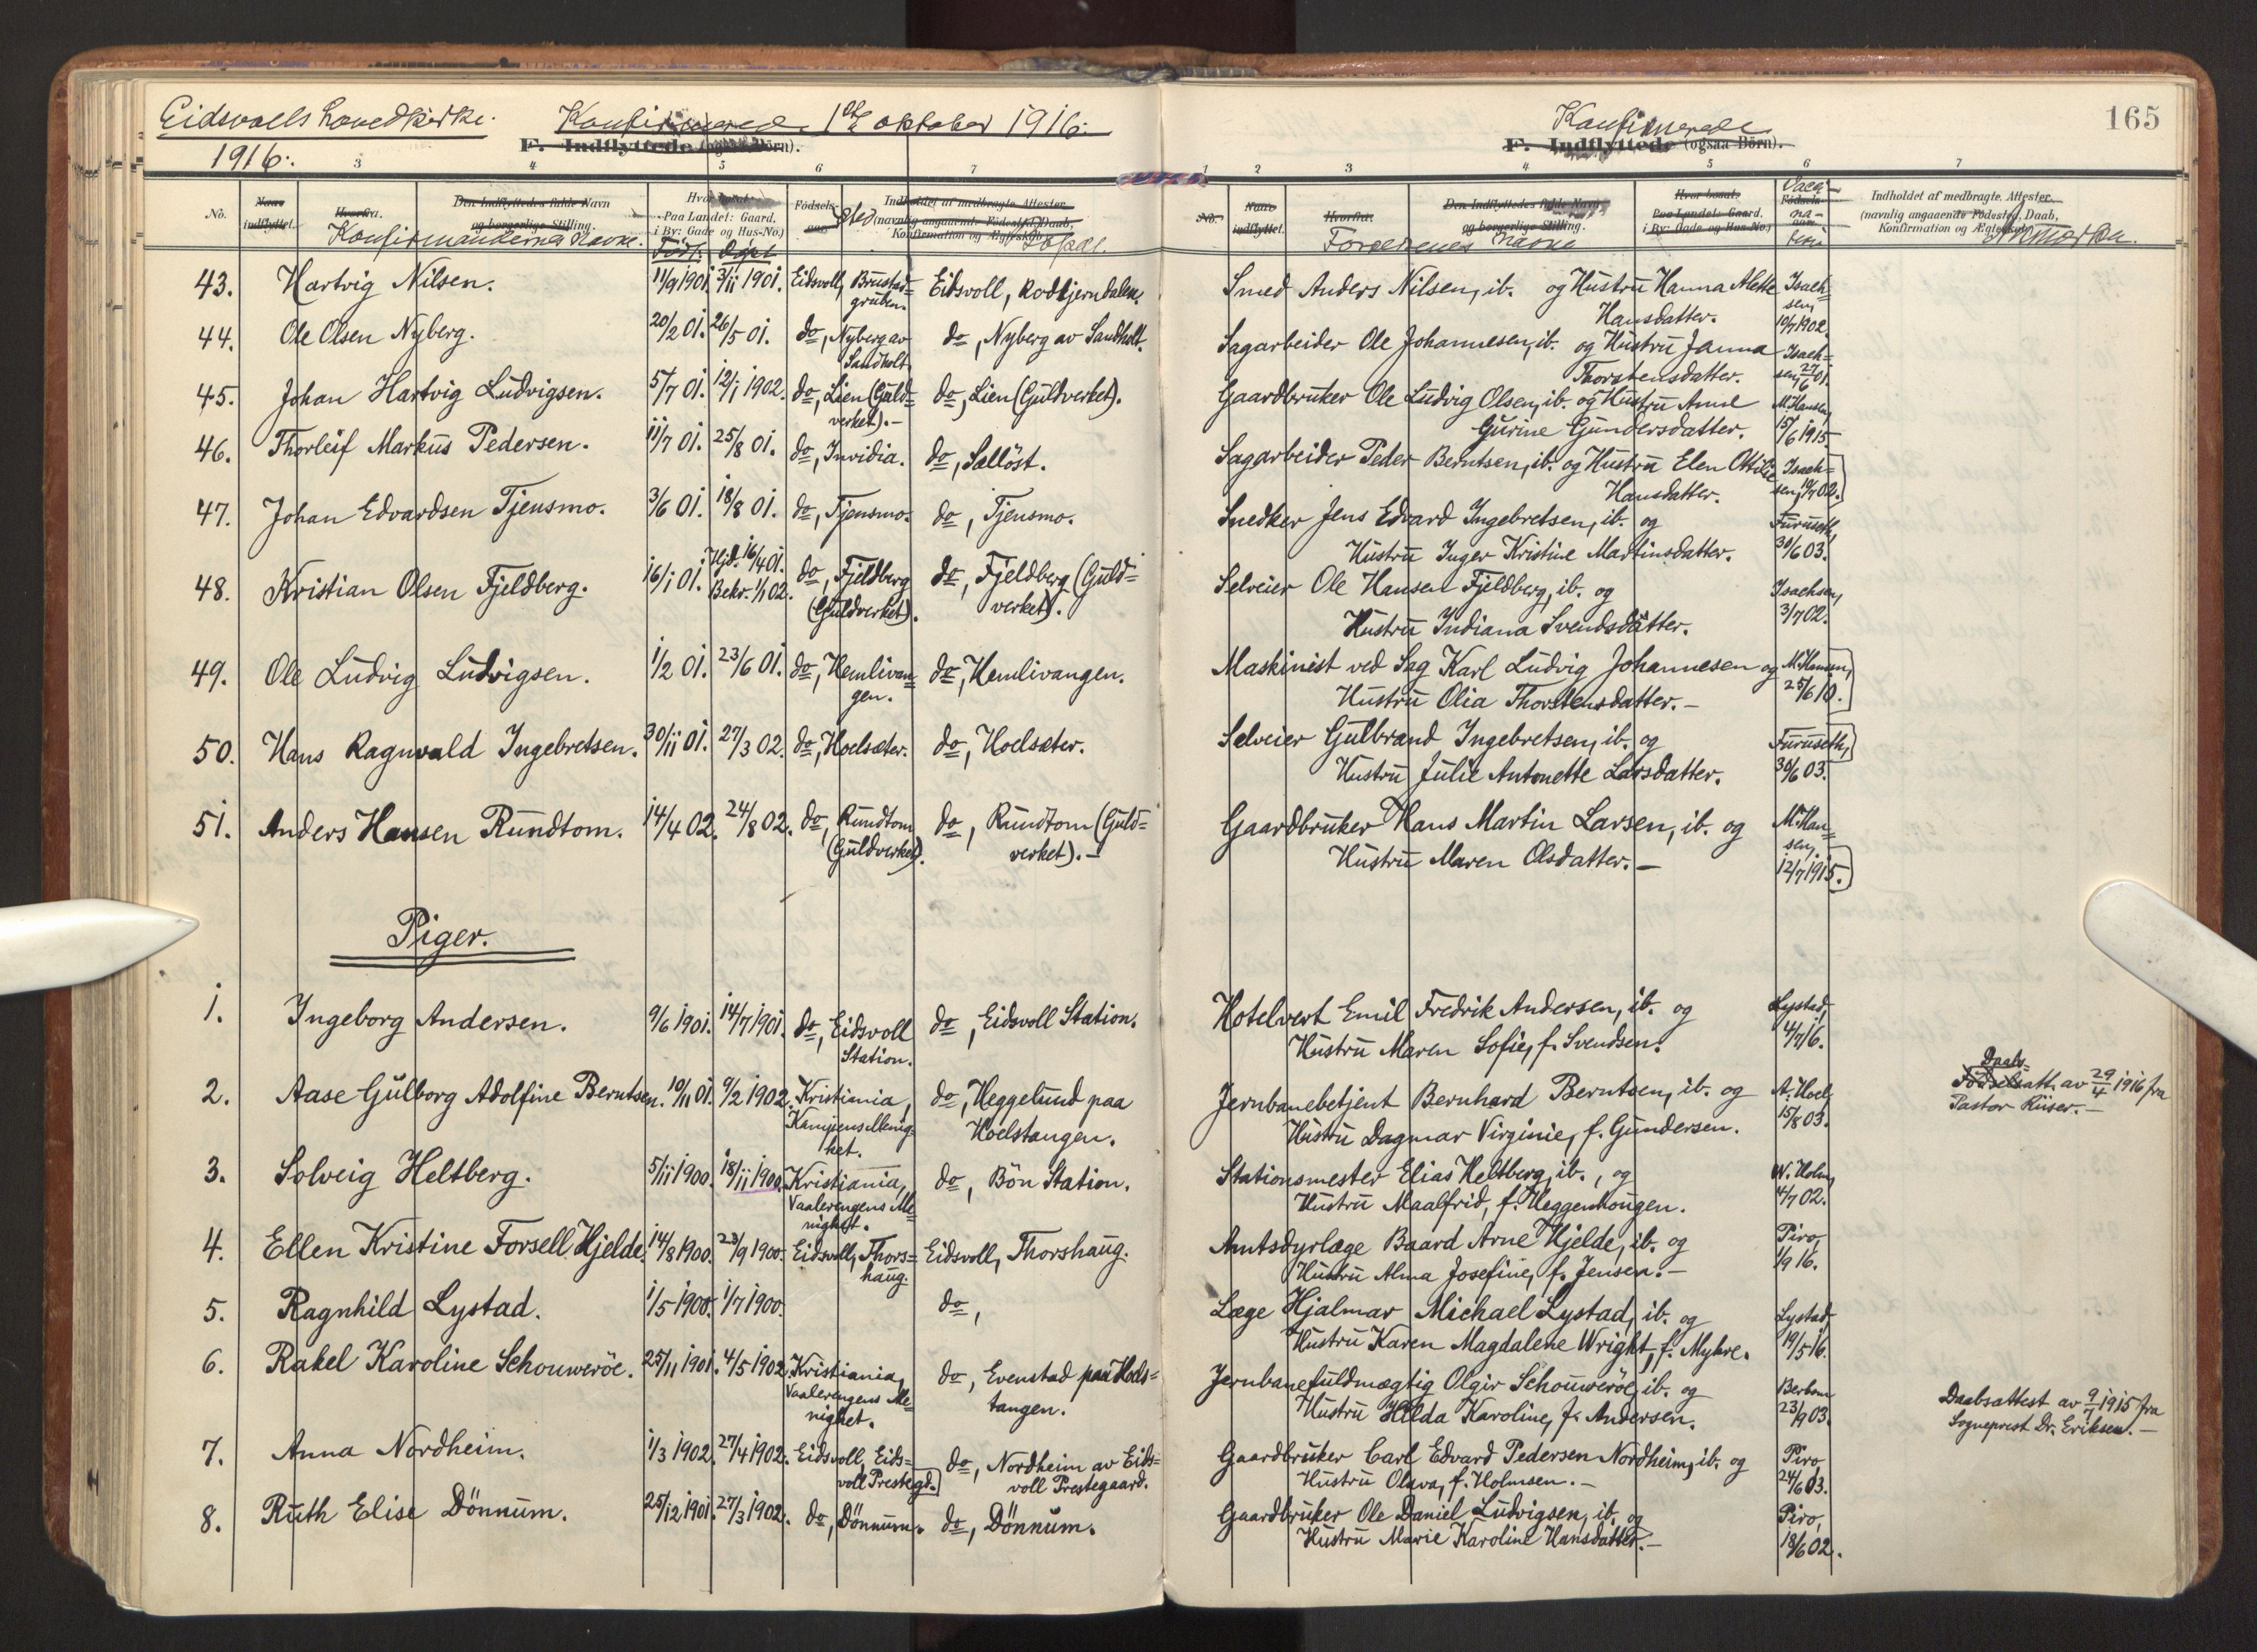 Eidsvolls hovedkirke. Konfirmerede 1ste oktober 1916.
1916.
F. Indflyttede (ogsaa Börn).
3 4 5 6 7
No. Naar indflyttet. Hvorfra. Den Indflyttedes fulde Navn og borgerlige Stilling. Hvor bosat. Paa Landet: Gaard, i By: Gade og Hus-No.) Födsels- aar Indholdet af medbragte Attester (navnlig angaaende Födested, Daab, Konfirmation og Ægteskab).
Konfirmandernes Navne. Födt. Döpt. sted Bopæl
43. Hartvig Nilsen. 11/9 1901. 3/11 1901. Eidsvoll, Brustad=
gruben. Eidsvoll, Rodtjerndalen.
44. Ole Olsen Nyberg. 20/2 01. 26/5 01. do, Nyberg av
Sandholt. do, Nyberg av Sandholt.
45. Johan Hartvig Ludvigsen. 5/7 01. 12/1 1902. do, Lien (Guld=
verket).- do, Lien (Guldverket).
46. Thorleif Markus Pedersen. 11/7 01. 25/8 01. do, Invidia. do, Sælløst.
47. Johan Edvardsen Tjensmo. 3/6 01. 18/8 01. do, Tjensmo. do, Tjensmo.
48. Kristian Olsen Fjeldberg. 16/1 01. Hjd. 16/4 01.
Bekr. 1/1 02. do, Fjeldberg
(Guldverket). do, Fjeldberg (Guld=
verket).
49. Ole Ludvig Ludvigsen. 1/2 01. 23/6 01. do, Hemlivan=
gen. do, Hemlivangen.
50. Hans Ragnvald Ingebretsen. 30/11 01. 27/3 02. do, Hoelsæter. do, Hoelsæter.
51. Anders Hansen Rundtom. 14/4 02. 24/8 02. do, Rundtom
(Guldverket). do, Rundtom (Guld=
verket).-
Piger.
1. Ingeborg Andersen. 9/6 1901. 14/7 1901. do, Eidsvoll
Station. do, Eidsvoll Station.
2. Aase Gulborg Adolfine Berntsen. 10/11 01. 9/2 1902. Kristiania,
Kampens Menig=
het. do, Heggelund paa
Hoelstangen.
3. Solveig Heltberg. 5/11 1900. 18/11 1900. Kristiania,
Vaalerengens Me=
nighet. do, Bön Station.
4. Ellen Kristine Forsell Hjelde. 14/8 1900. 23/9 1900. Eidsvoll, Thors=
haug. Eidsvoll, Thorshaug.
5. Ragnhild Lystad. 1/5 1900. 1/7 1900. do,
6. Rakel Karoline Schouweröe. 25/11 1901. 4/5 1902. Kristiania,
Vaalerengens Me=
nighet. do, Evenstad paa Hoels=
tangen.
7. Anna Nordheim. 1/3 1902. 27/4 1902. Eidsvoll, Eids=
voll Prestegd. do, Nordheim av Eids=
voll Prestegaard.
8. Ruth Elise Dönnum. 25/12 1901. 27/3 1902. do, Dönnum. do, Dönnum.
Konfirmerede
165
F. Indflyttede (ogsaa Börn).
1 2 3 4 5 6 7
No. Naar indflyttet. Hvorfra. Den Indflyttedes fulde Navn og borgerlige Stilling. Hvor bosat. Paa Landet: Gaard, i By: Gade og Hus-No.) Födsels- aar Indholdet af medbragte Attester (navnlig angaaende Födested, Daab, Konfirmation og Ægteskab).
Forældrenes Navne Anmærkn.
Smed Anders Nilsen, ib. og Hustru Hanna Mette Isach=
Hansdatter. sen, 10/7 1902.
Sagarbeider Ole Johannesen, ib. og Hustru Janna Isach=
Thorstensdatter. sen, 27/6 01.
Gaardbruker Ole Ludvig Olsen, ib. og Hustru Anne M. Hansen,
Gurine Gundersdatter. 15/6 1915.
Sagarbeider Peder Berntsen, ib. og Hustru Elen Ottilie Isach=
Hansdatter. sen, 10/7 02.
Snedker Jens Edvard Ingebretsen, ib. og Furuseth,
Hustru Inger Kristine Martinsdatter. 30/6 03.
Selveier Ole Hansen Fjeldberg, ib. og Isachsen,
Hustru Indiana Svendsdatter. 3/7 02.
Maskinist ved Sag Karl Ludvig Johannesen og M. Hansen,
Hustru Olia Thorstensdatter.- 25/6 10.
Selveier Gulbrand Ingebretsen, ib. og Furuseth,
Hustru Julie Antonette Larsdatter. 30/6 03.
Gaardbruker Hans Martin Larsen, ib. og M. Han=
Hustru Maren Olsdatter.- sen, 12/7 1915.
Hotelvert Emil Fredrik Andersen, ib. og Lystad,
Hustru Maren Sofie, f. Svendsen. 4/7 16.
Jernbanebetjent Bernhard Berntsen, ib. og A. Hoel, Daabs Födselsatt. av 29/4 1916 fra
Hustru Dagmar Virginie, f. Gundersen. 15/8 03. Pastor Riiser.-
Stationsmester Elias Heltberg, ib., og W. Holm,
Hustru Maalfrid, f. Heggenhougen. 4/7 02.
Amtsdyrlæge Baard Arne Hjelde, ib. og Piro,
Hustru Alma Josefine, f. Jensen.- 1/9 16.
Læge Hjalmar Michael Lystad, ib. og Lystad,
Hustru Karen Magdalene Wright, f. Myhre. 19/5 16.
Jernbanefuldmægtig Olgir Schouweröe, ib. og 
Hustru Hilda Karoline, f. Andersen. 23/9 03. Daabsattest av 9/7 1915 fra
Sogneprest Dr. Eriksen.-
Gaardbruker Carl Edvard Pedersen Nordheim, ib. og Piro,
Hustru Olava, f. Holmsen.- 24/6 03.
Gaardbruker Ole Daniel Ludvigsen, ib. og Piro,
Hustru Marie Karoline Hansdatter.- 18/6 02.